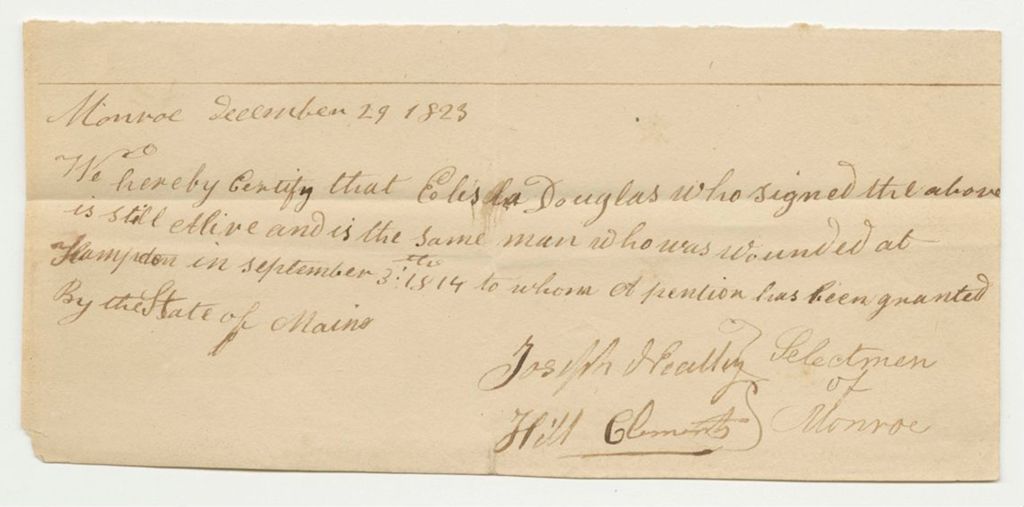 Monroe december 29 1823
We hereby Certify that Elisha Douglas who signed the above
is still Alive and is the same man who was wounded at
Hampden in september 3th 1814 to whom A pention has been granted
By the State of Maine
Joseph Neally Selectmen
of
Hill Clements Monroe